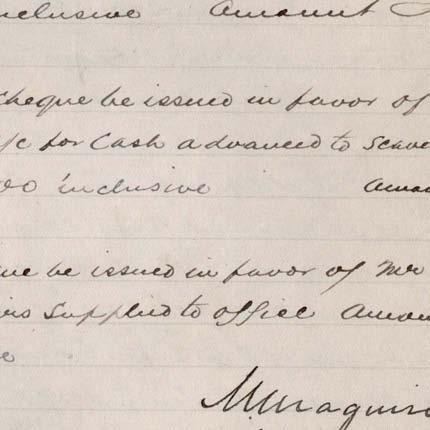 nclusive Amount
cheque be issued in favor of
/c for Cash advanced to Scave
00 inclusive Amou
ue be issued in favor of Mr
irs Supplied to office Amoun
e